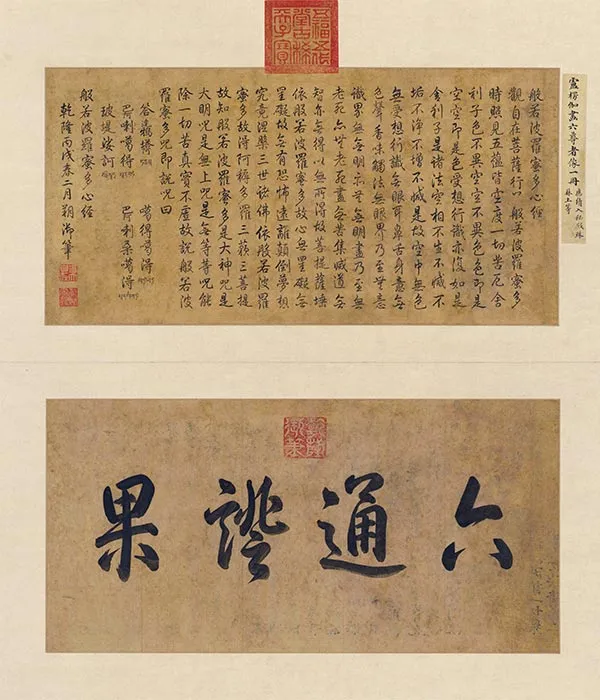 五福五代堂古稀天子寶
盧楞伽畫六尊者像一冊
應續入秘殿珠
林上等
般若波羅蜜多心經
觀自在菩薩行以般若波羅蜜多
時照見五蘊皆空度一切苦厄舍
利子色不異空空不異色色即是
空空即是色受想行識亦復如是
舍利子是諸法空相不生不滅不
垢不淨不增不減是故空中無色
無受想行識無眼耳鼻舌身意無
色聲香味觸法無眼界乃至無意
識界無無明亦無無明盡乃至無
老死亦無老死盡無苦集滅道無
智亦無得以無所得故菩提薩埵
依般若波羅蜜多故心無罣礙無
罣礙故無有恐怖遠離顛倒夢想
究竟涅槃三世諸佛依般若波羅
蜜多故得阿耨多羅三藐三菩提
故知般若波羅蜜多是大神咒是
大明咒是無上咒是無等等咒能
除一切苦真實不虛故說般若波
羅蜜多咒即說咒曰
答嘉塔 葛得葛得
喇葛得 喇桑葛得
玻堤娑訶
般若波羅蜜多心經
乾隆丙戌春二月朔御筆
乾隆御筆
六通證果